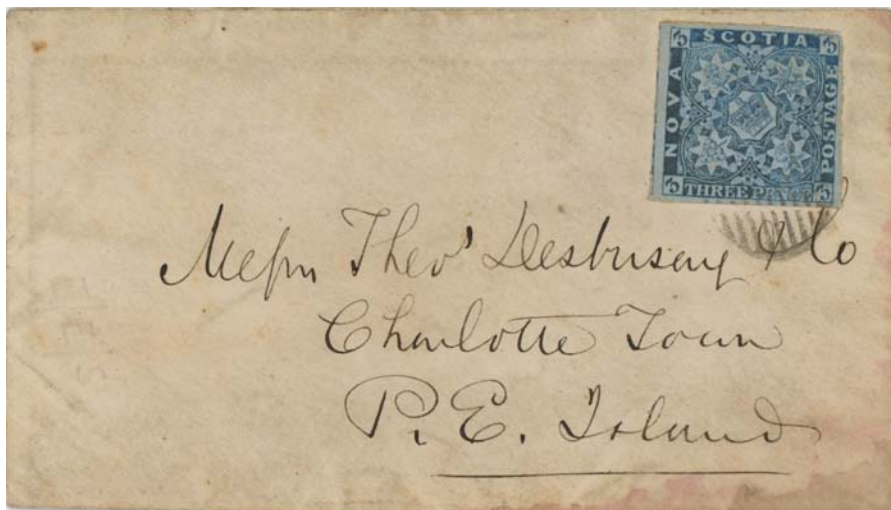 NOVA SCOTIA POSTAGE
THREE PENCE
Messrs Theos Desbrisay & Co
Charlotte Town
P. E. Island